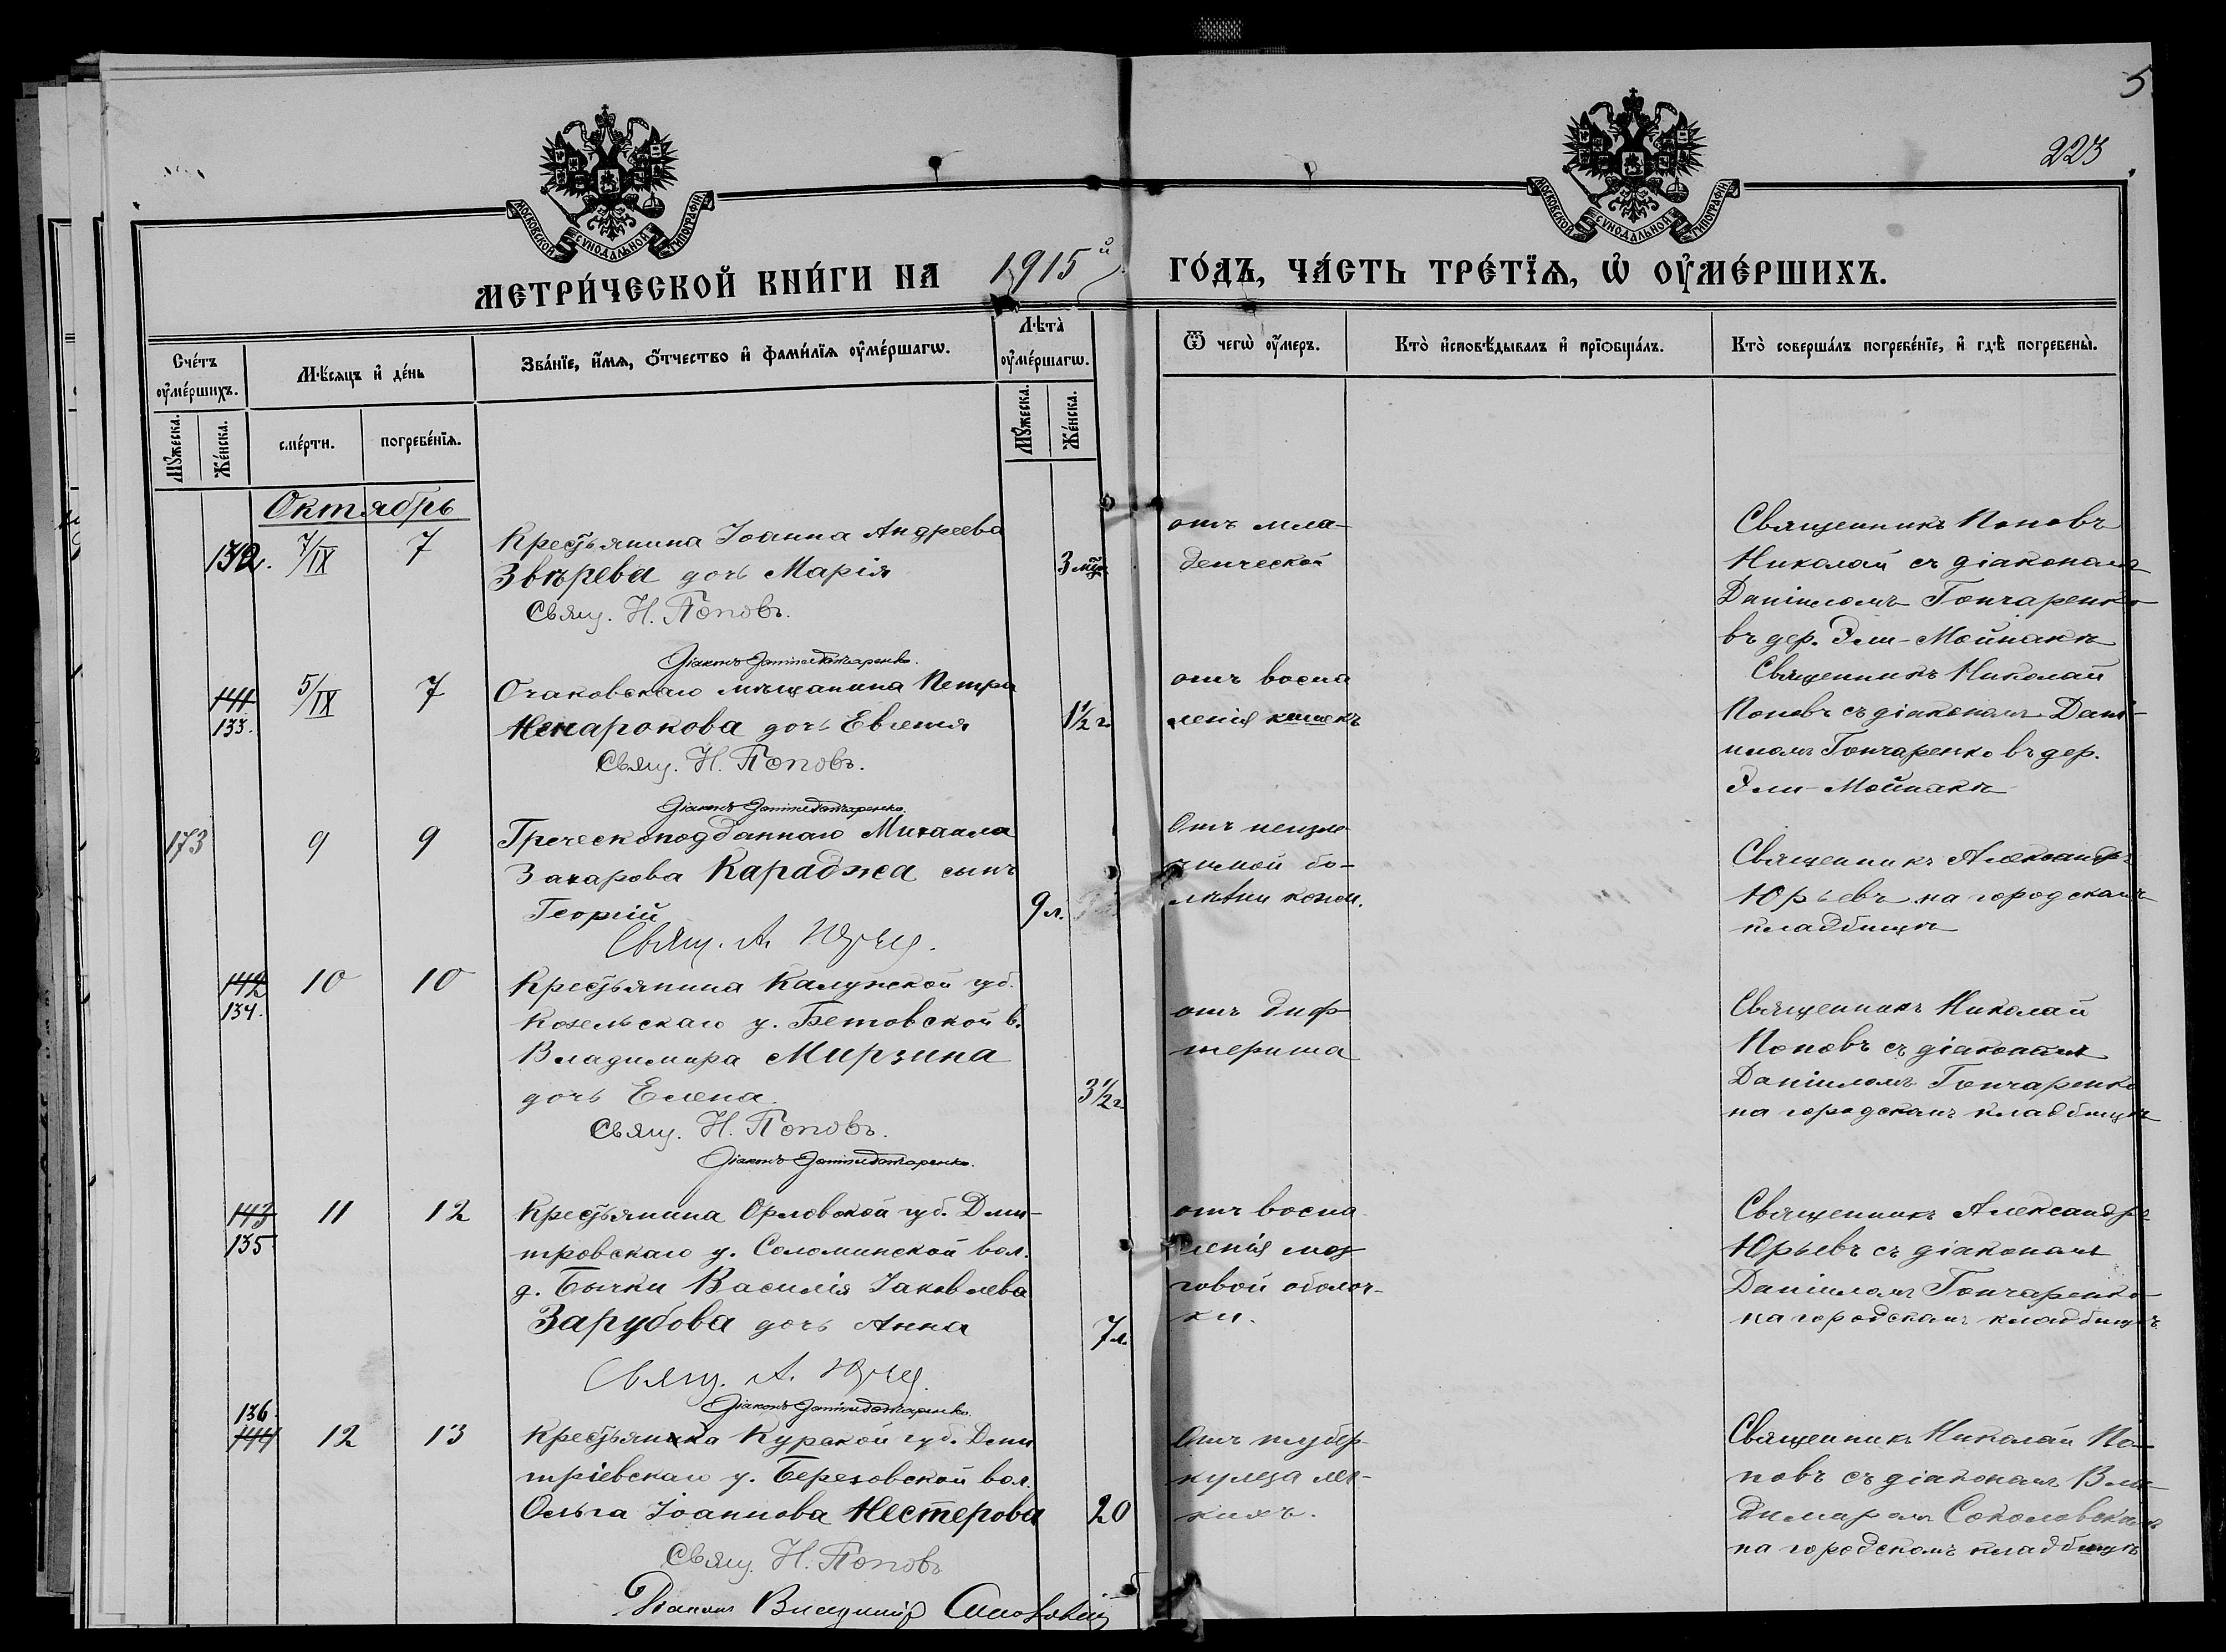 5
223
МОСКОВСКОЙ СѴНОДАЛЬНОЙ ТИПОГРАФІИ
МОСКОВСКОЙ СѴНОДАЛЬНОЙ ТИПОГРАФІИ
МЕТРИ́ЧЕСКОЙ КНИ́ГИ НА 1915й ГО́ДЪ, ЧА́СТЬ ТРЕ́ТЇѦ, Ѡ҆ ОУ҆МЕ́РШИХЪ.
Сче́тъ оу҆ме́ршихъ.
Мѣ́сяцъ и҆ де́нь
Зва́нїе, и҆́мѧ, ѻ҆́тчество и҆ фами́лїѧ оу҆ме́ршагѡ.
Лѣ́та оу҆ме́ршагѡ.
Ѿ чегѡ̀ оу҆́меръ.
Кто̀ и҆сповѣ́дывалъ и҆ прїѡбща́лъ.
Кто̀ соверша́лъ погребе́нїе, и҆ гдѣ̀ погребены̀.
Мꙋ́жеска.
Же́нска.
сме́рти.
погребе́нїѧ.
Мꙋ́жеска.
Же́нска.
Октябрь
132. 7/IX 7
Крестьянина Іоанна Андреева
Звѣрева дочь Марія
3 мѣс.
Свящ. Н. Поповъ.
Діаконъ Даніилъ Гончаренко.
отъ мла-
денческой
Священникъ Поповъ
Николай съ діакономъ
Даніиломъ Гончаренко
въ дер. Эли-Мойнакъ
141
133.
5/IX 7
Очаковскаго мѣщанина Петра
Ненарокова дочь Евгенія
1½ г.
Свящ. Н. Поповъ.
Діаконъ Даніилъ Гончаренко.
отъ воспа
ленія кишекъ
Священникъ Николай
Поповъ съ діакономъ Дані-
иломъ Гончаренко въ дер.
Эли-Мойнакъ
173 9 9
Греческоподданнаго Михаила
Захарова Караджа сынъ
Георгій
9 л.
Свящ. А. Юрьев.
Отъ неизле-
чимой бо-
лѣзни
Священникъ Александръ
Юрьевъ на городскомъ
кладбищѣ
142
134.
10 10
Крестьянина Калужской губ.
Козельскаго у. Бетовской в.
Владимира Мирзина
дочь Елена.
3½ г.
Свящ. Н. Поповъ.
Діаконъ Даніилъ Гончаренко.
отъ диф-
терита
Священникъ Николай
Поповъ съ діакономъ
Даніиломъ Гончаренко
на городскомъ кладбищѣ
143
135.
11 12
Крестьянина Орловской губ. Дми-
тровскаго у. Соломинской вол.
д. Бычки Василія Іаковлева
Зарубова дочь Анна
7 л.
Свящ. А. Юрьев.
Діаконъ Даніилъ Гончаренко.
отъ воспа
ленія моз
говой оболоч-
ки.
Священникъ Александръ
Юрьевъ съ діакономъ
Даніиломъ Гончаренко
на городскомъ кладбищѣ
136.
144
12 13
Крестьянка Курской губ. Дми
тріевскаго у. Березовской вол.
Ольга Іоаннова Нестерова
20
Свящ. Н. Поповъ
Діаконъ Владимір Соколовскій
Отъ тубер-
кулеза лег-
кихъ.
Священникъ Николай По-
повъ съ діакономъ Вла-
димиромъ Соколовскимъ
на городскомъ кладбищѣ